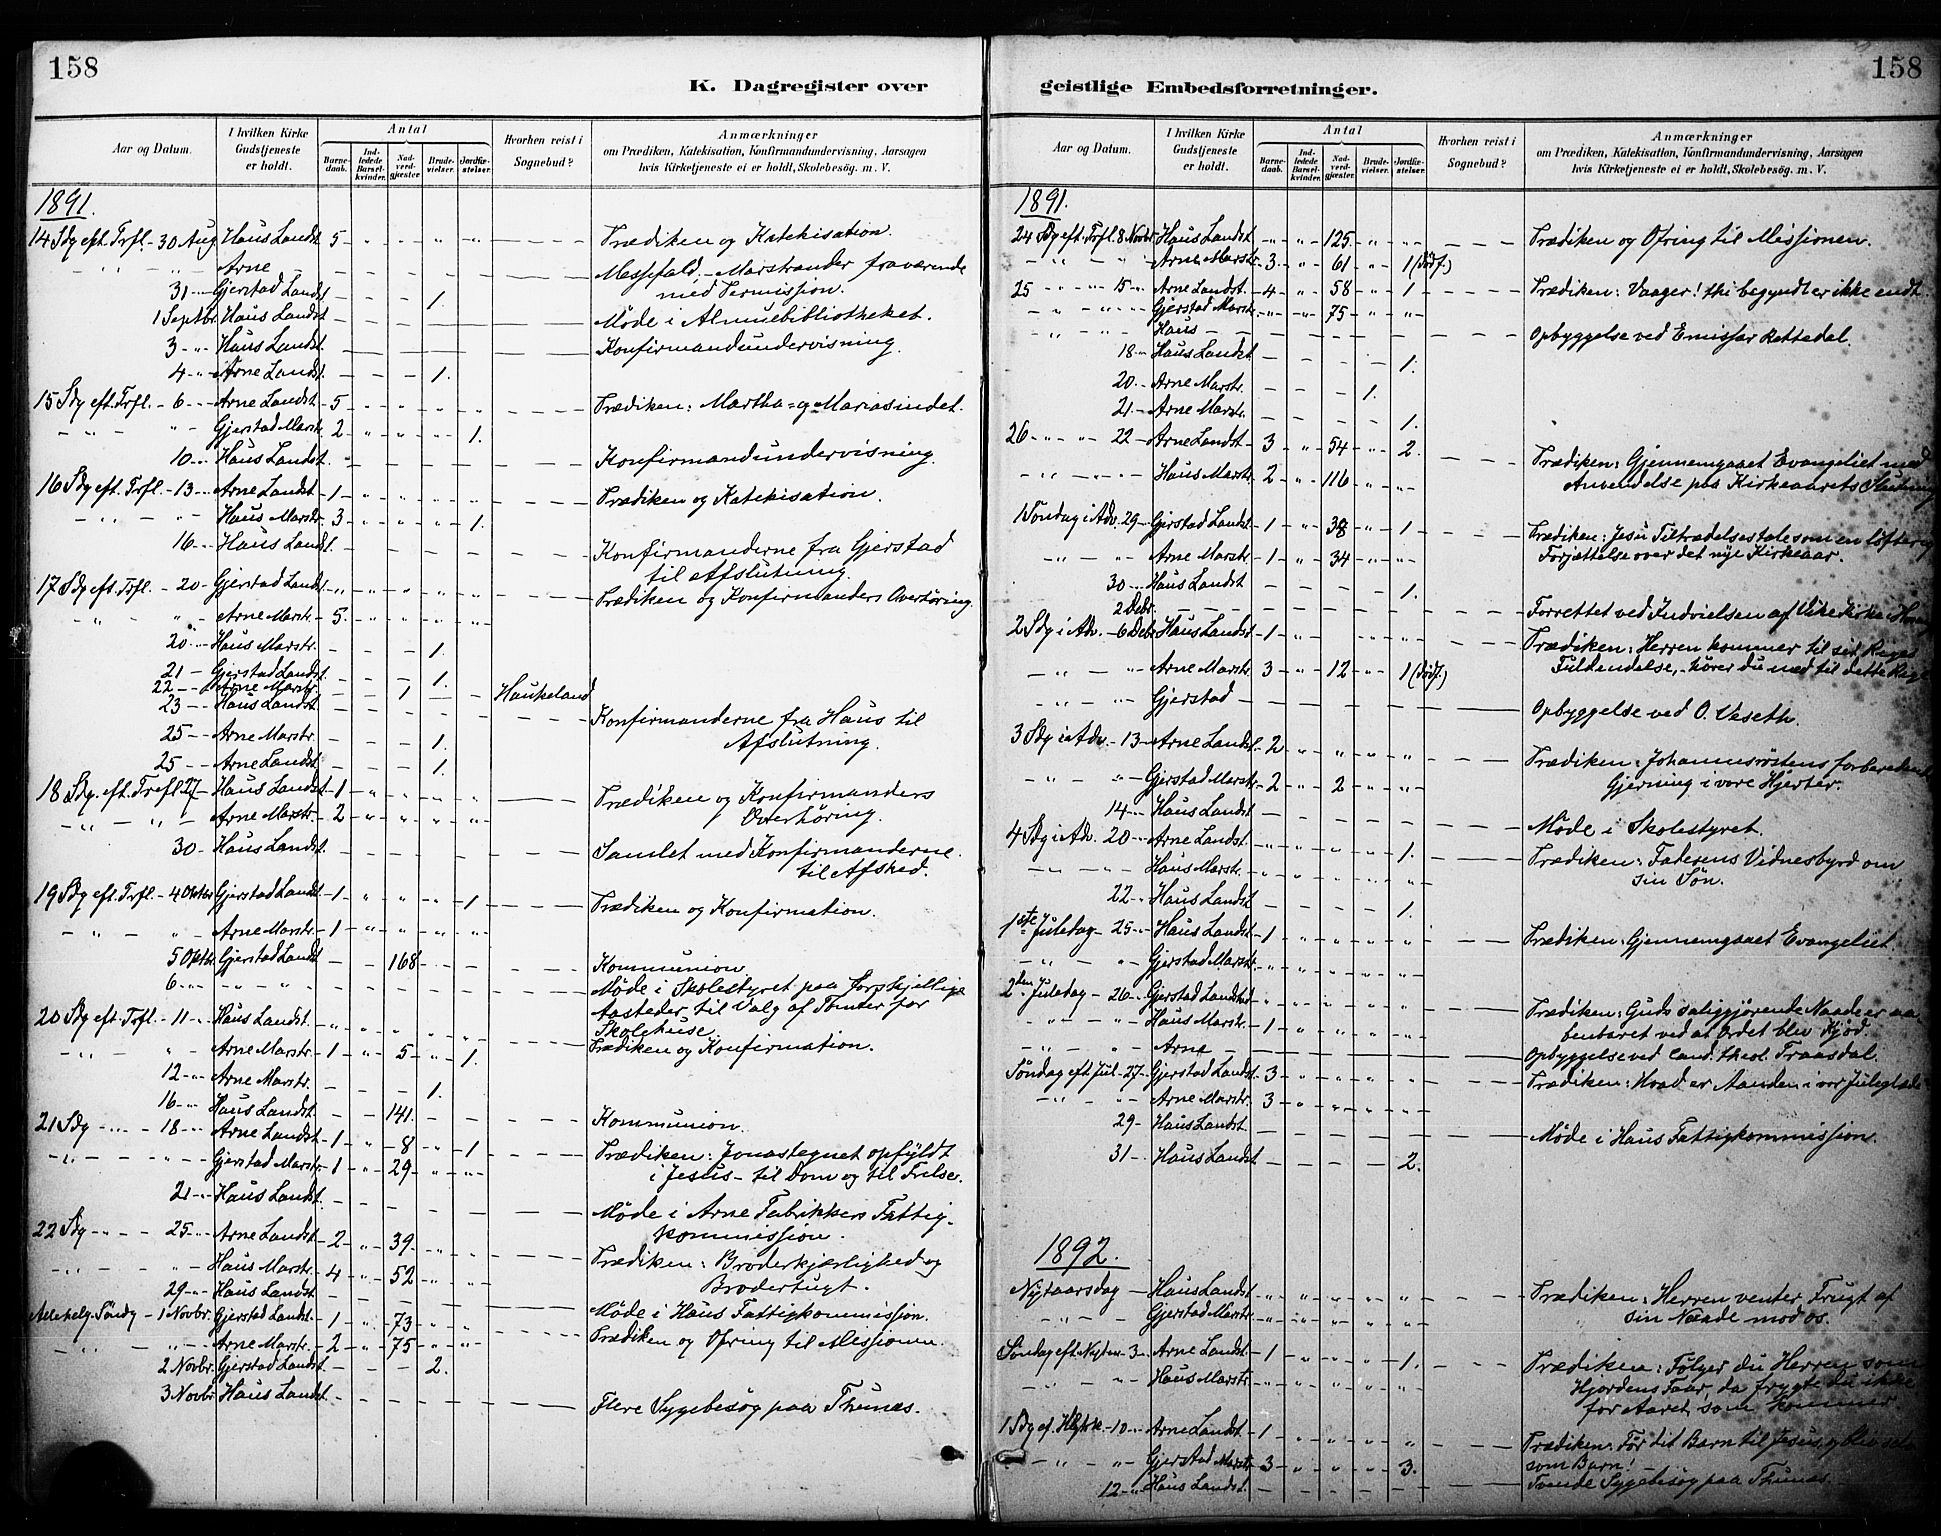 158
K. Dagregister over
Aar og Datum.
I hvilken Kirke Gudstjeneste er holdt.
Antal
Barne-daab.
Ind-ledede Barsel-kvinder.
Nad-verd-gjæster.
Brude-vielser.
Jordfæ-stelser.
Hvorhen reist i Sognebud?
Anmærkninger
om Prædiken, Katekisation, Konfirmandundervisning, Aarsagen
hvis Kirketjeneste ei er holdt, Skolebesøg. m. V.
1891.
14 Sdg eft. Trfl. - 30 Aug Haus Landst. 5 " " " " Prædiken og Katekisation.
" " Arne Messefald. - Marstrander fraværende
med Permission.
31 " Gjerstad Landst. 1.
1 Septbr. Haus Landst. Møde i Almuebibliotheket.
3 " Haus Landst. Konfirmandundervisning.
4 " Arne Landst. 1.
15 Sdg eft. Trfl. - 6 " Arne Landst. 5 " " " " Prædiken: Martha- og Mariasindet.
" " Gjerstad Marstr. 2 " " " 1.
10 " Haus Landst. Konfirmandundervisning.
16 Sdg eft. Trfl. - 13 " Arne Landst. 1 " " " " Prædiken og Katekisation.
" " Haus Marstr. 3 " " " 1.
16 " Haus Landst. Konfirmanderne fra Gjerstad
til Afslutning.
17 Sdg eft. Trfl. - 20 - Gjerstad Landst. " " " " " Prædiken og Konfirmanders Overhøring.
" " Arne Marstr. 5. " " " "
20 " Haus Marstr. 1.
21 - Gjerstad Landst. 1.
22 - Arne Marstr. 1 Haukeland
23 - Haus Landst. Konfirmanderne fra Haus til
Afslutning.
25 - Arne Marstr. 1.
25 - Arne Landst. 1.
18 Sdg. eft. Trefl 27 - Haus Landst. 1 " " " " Prædiken og Konfirmanders
Overhøring.
" " Arne Marstr. 2 " " " "
30 - Haus Landst. Samlet med Konfirmanderne
til Afsked.
19 Sdg eft. Trfl. - 4 Oktbr Gjerstad Landst. 1 " " " 1. Prædiken og Konfirmation.
" " Arne Marstr. 1 " " " "
5 Oktbr. Gjerstad Landst 168 Kommunion.
6 " " " Møde i Skolestyret paa forskjellige
Aasteder til Valg af Tomter for
Skolehuse.
20 Sdg eft. Trfl. - 11 " Haus Landst. " " " " " Prædiken og Konfirmation.
" " Arne Marstr. 1 " 5 " 1.
12 " Arne Marstr. 1.
16 " Haus Landst. 141. Kommunion.
21 Sdg " 18 " Arne Landst. 1 " 8 " 1 Prædiken: Jonastegnet opfyldt
i Jesus - til Dom og til Frelse.
" " Gjerstad Marstr. 1 " 29 " "
21 " Haus Landst. Møde i Arne Fabrikkers Fattig-
kommission.
22 Sdg " 25 " Arne Landst. 2 " 39 " " Prædiken: Broderkjærlighed og
Brodertugt.
" " Haus Marstr. 4 " 52 " "
29 " Haus Landst. Møde i Haus Fattigkommission.
Allehelg. Søndg - 1 Novbr. Gjerstad Landst. 1 " 73 " " Prædiken og Ofring til Missionen.
" " Arne Marstr. 2 " 75 " "
2 Novbr. Gjerstad Landst 2.
3 Novbr Haus Landst. Flere Sygebesøg paa Thunæs.
158
geistlige Embedsforretninger.
Aar og Datum.
I hvilken Kirke Gudstjeneste er holdt.
Antal
Barne-daab.
Ind-ledede Barsel-kvinder.
Nad-verd-gjæster.
Brude-vielser.
Jordfæ-stelser.
Hvorhen reist i Sognebud?
Anmærkninger
om Prædiken, Katekisation, Konfirmandundervisning, Aarsagen
hvis Kirketjeneste ei er holdt, Skolebesøg. m. V.
1891.
24 Sdg eft. Trfl. 8 Novbr. Haus Landst. " " 125. " " Prædiken og Ofring til Missionen.
" " Arne Marstr. 3 " 61 " 1 (dødf.)
25 " 15 " Arne Landst. 4 " 58 " 1 Prædiken: Vaager! thi begyndt er ikke endt
" " Gjerstad Marstr. " " 75 " "
" " Haus Opbyggelse ved Emissær Rettedal.
18 " Haus Landst 1.
20 - Arne Marstr. 1.
21 - Arne Marstr. 1.
26 " 22 - Arne Landst. 3 " 54 " 2. Prædiken: Gjennemgaaet Evangeliet med
Anvendelse paa Kirkeaarets Slutning
" " Haus Marstr. 2 " 116 " "
1 Søndag i Adv. 29 - Gjerstad Landst. 1 " 38 " 1 Prædiken: Jesu Tiltrædelsestale som en løfterig
Forjættelse over det nye Kirkeaar.
" " Arne Marstr. 1 " 34 " "
30 " Haus Landst 1.
2 Debr. Forrettet ved Indvielsen af
2 Sdg i Adv. - 6 Debr Haus Landst. 1 " " " Prædiken: Herren kommer til sit Riges
Fuldendelse, - hører du med til dette Rige
" " Arne Marstr. 3 " 12 " 1 (dødf.)
" " Gjerstad Opbyggelse ved O. Veseth.
3 Sdg i Adv. - 13 - Arne Landst. 2 " " " " Prædiken: Johannesrøstens forberedende
Gjerning i vore Hjerter.
" " Gjerstad Marstr. 2 " 2 " "
14 - Haus Landst Møde i Skolestyret.
4 Sdg i Adv. 20 - Arne Landst. " " " " 1. Prædiken: Faderens Vidnesbyrd om
sin Søn.
" " Haus Marstr. " " " " "
22 - Haus Landst 1.
1ste Juledag - 25 - Haus Landst. 1 " " " " Prædiken: Gjennemgaaet Evangeliet.
" " Gjerstad Marstr. " " " " "
2den Juledag - 26 - Gjerstad Landst. " " " " " Prædiken: Guds saliggjørende Naade er aa-
benbaret ved at Ordet blev Kjød.
" " Haus Marstr. 1 " " " "
" " Arne Opbyggelse ved Cand. theol. Traasdal.
Søndag eft Jul - 27 - Gjerstad Landst. 3 " " " " Prædiken: Hvad er Aanden i vor Juleglæde
" " Arne Marstr. 3 " " " "
29 - Haus Landst. Møde i Haus Fattigkommission.
31 - Haus Landst 2.
1892.
Nytaarsdag - Haus Landst " " " " " Prædiken: Herren venter Frugt af
sin Naade mod os.
" " Gjerstad Marstr. " " " " "
Søndag eft Nytaar - 3 - Arne Landst. 1 " " " 1. Prædiken: Følger du Herren som
Hjordens Faar, da frygte du ikke
for Aaret, som kommer
" " Haus Marstr. " " " " "
1 Sdg ef. H3K - 10 " Arne Landst. 1 " " " " Prædiken: Før dit Barn til Jesus, og bliv selv
som Barn!
" " Gjerstad Marstr. 3 " " " 3.
12 - Haus Landst. Tvende Sygebesøg paa Thunæs.